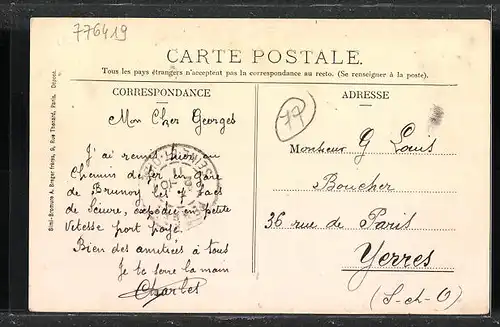 776419
CARTE POSTALE.
Tous les pays étrangers n'acceptent pas la correspondance au recto. (Se renseigner à la poste.)
CORRESPONDANCE
Mon Cher Georges
J'ai remis hier au
Chemin de fer en Gare
de Brunoy les 7 sacs
de Sciure, expédié en petite
Vitesse port payé.
Bien des amitiées à tous
Je te serre la main
Charles
ADRESSE
77
Monsieur G Louis
Boucher
36 rue de Paris
Yerres
(S-et-O)
Simi-Bromure A. Breger frères, 9, Rue Thénard, Paris. Déposé.